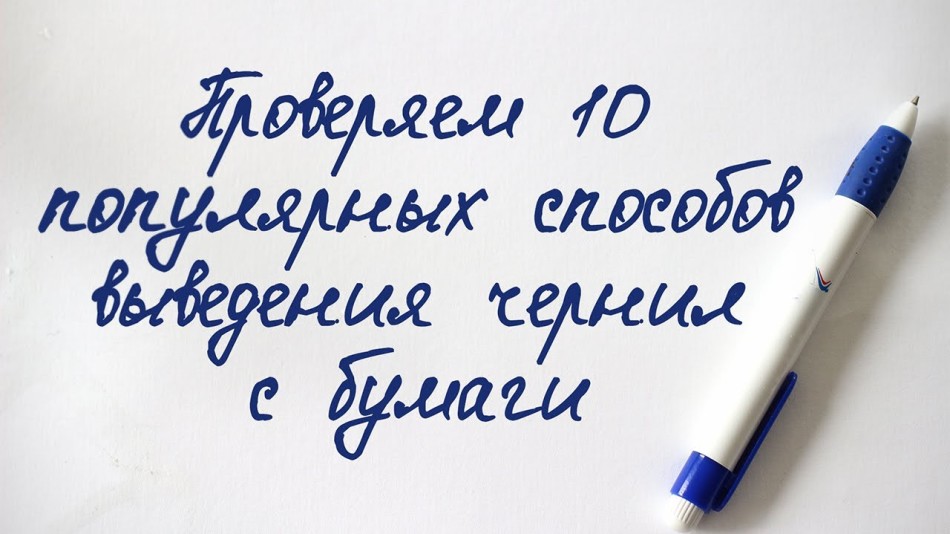 Проверяем 10
популярных способов
выведения чернил
с бумаги